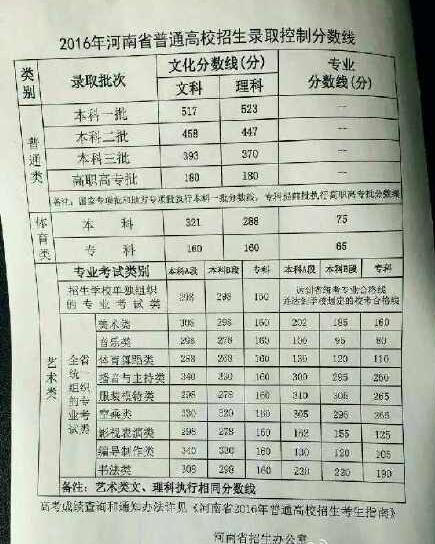 2016年河南省普通高校招生录取控制分数线
类别 录取批次 文化分数线(分) 专业分数线(分)
文科 理科
普通类
本科一批 517 523 —
本科二批 458 447 —
本科三批 393 370 —
高职高专批 180 180 —
备注：国家专项批和地方专项批执行本科一批分数线，专科提前批执行高职高专批分数线
体育类
本 科 321 288 75
专 科 160 160 65
艺术类
专业考试类别 本科A段 本科B段 专科 本科A段 本科B段 专科
招生学校单独组织的专业考试类 298 298 160 达到省统考专业合格线并达到学校划定的校考合格线
全省统一组织的专业考试类
美术类 308 298 160 202 185 160
音乐类 298 278 160 95 80
体育舞蹈类 288 268 160 130 120 110
播音与主持类 340 330 160 300 285 260
服装模特类 298 278 160 310 305 265
空乘类 330 320 160 305 295 265
影视表演类 298 278 160 162 155 125
编导制作类 340 330 160 130 120 105
书法类 308 298 160 220 190
备注：艺术类文、理科执行相同分数线
高考成绩查询和通知办法详见《河南省2016年普通高校招生考生指南》
河南省招生办公室